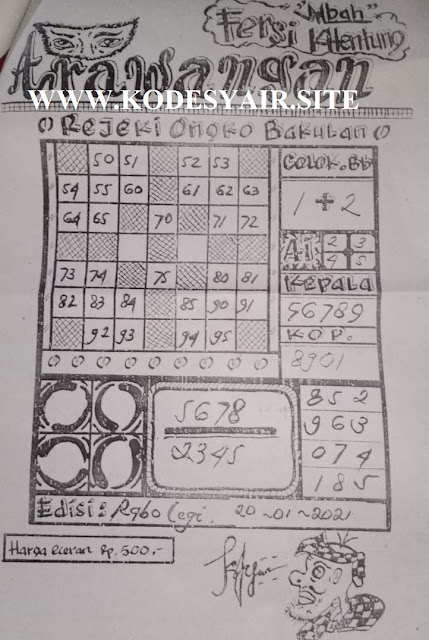 "Mbah
Fersi KHentung
Trawangan
WWW.KODESYAIR.SITE
Rejeki Onoko Bakulan
50 51 52 53
54 55 60 61 62 63
64 65 70 71 72
73 74 75 80 81
82 83 84 85 90 91
92 93 94 95
Colok.BB
1 + 2
Ai 2 3
4 5
Kepala
56789
KOP.
8901
5678
2345
852
963
074
185
Edisi: Rabo Legi, 20-01-2021
Harga Eceran Rp, 500,-